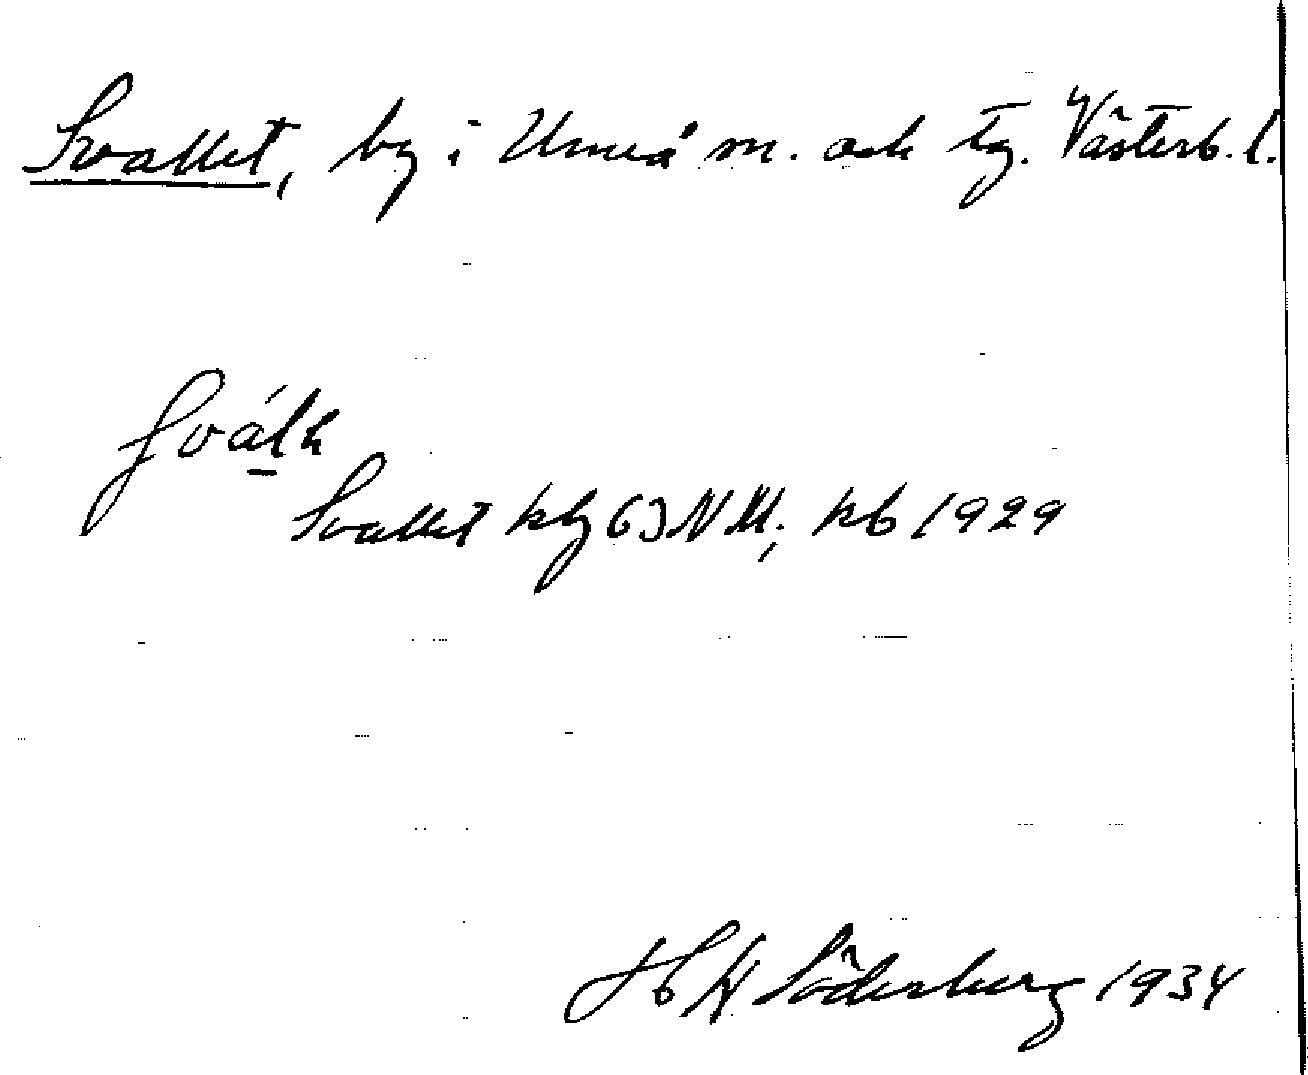 Svallet, by i Umeå m. och tg. Västerb. l.
Svallet kbl 63 NM; kb 1929
Söderberg 1934